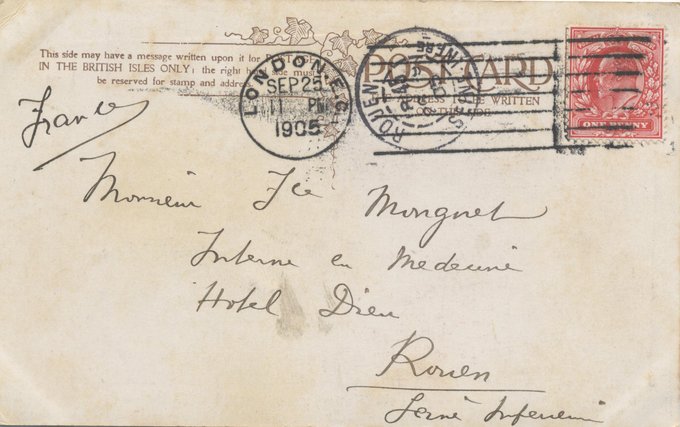 This side may have a message written upon it for POSTAGE
IN THE BRITISH ISLES ONLY; the right hand side must
be reserved for stamp and address
POST CARD
ADDRESS TO BE WRITTEN
ON THIS SIDE
LONDON. E.C.
SEP 25
11 PM
1905
ROUEN
ONE PENNY
France
Monsieur Mongnet
Interne en Medecine
Hotel Dieu
Rouen
Seine Inferieure